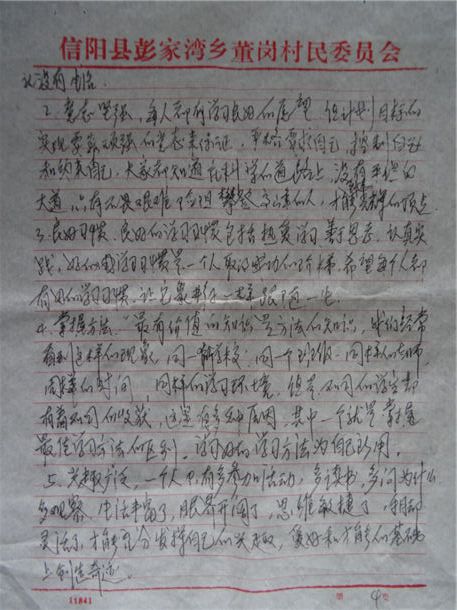 信阳县彭家湾乡董岗村民委员会
以没有
2. 意志坚强，每人都有学习良好的愿望，但计划目标的
实现要靠顽强的意志来保证，严格要求自己，控制自己
和约束自己，大家都知道在科学的道路上没有平坦的
大道，只有不畏艰难险阻攀登高峰的人，才能光辉的顶点
3. 良好习惯，良好的学习习惯包括热爱学习善于思考、认真实
践，好的学习习惯是一个人取得成功的阶梯，希望每个人都
有好的学习习惯，让它象书伴一辈子跟随一生。
4. 掌握方法，“最有价值的知识是方法的知识，我们经常
看到这样的现象，同一所学校，同一个班级，同样的老师，
同样的时间，同样的学习环境，但是不同的学生却
有着不同的收获，这里有多种原因，其中一个就是掌握
最佳学习方法的区别，学习好的学习方法为自己所用。
5. 兴趣广泛，一个人只有多参加活动，多读书，多问为什么
多观察，生活丰富了，眼界开阔了，思维敏捷了，行动
灵活了，才能充分发挥自己的兴趣，爱好和才能的基础
上创造奇迹。
(184)
第 4 页